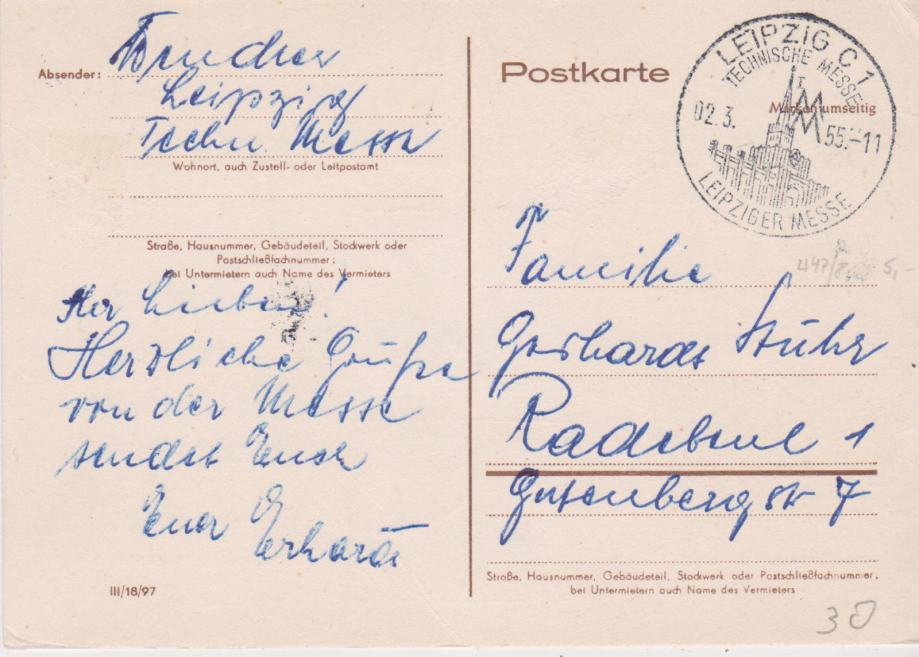 Absender:
Leipzig
Techn. Messe
Wohnort, auch Zustell- oder Leitpostamt
Straße, Hausnummer, Gebäudeteil, Stockwerk oder
Postschließfachnummer;
bei Untermietern auch Name des Vermieters
Ihr Lieben!
Herzliche Grüße
von der Messe
sendet Euch
Euer Erhard
III/18/97
Postkarte
Marken umseitig
LEIPZIG C 1
TECHNISCHE MESSE
02.3. 55.-11
LEIPZIGER MESSE
5,-
Familie
Gerhardt Stuhr
Radebeul 1
Gutenbergstr 7
Straße, Hausnummer, Gebäudeteil, Stockwerk oder Postschließfachnummer;
bei Untermietern auch Name des Vermieters